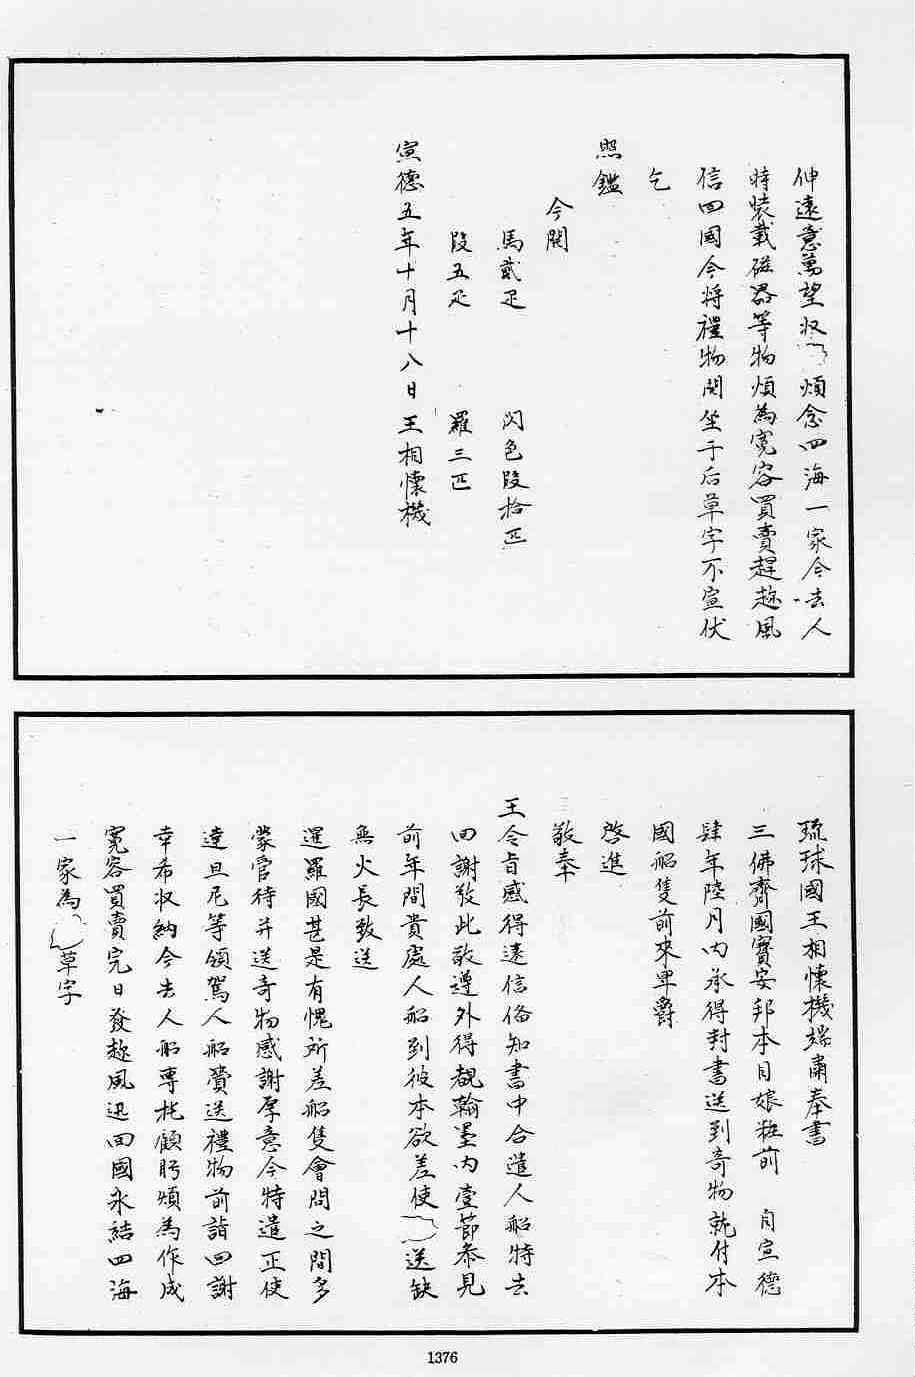 伸遠意萬望收 煩念四海一家今去人
時裝載磁器等物煩為寛容買賣趕趂風
信回國今将禮物開坐于后草字不宣伏
乞
照鑑
今開
馬貳疋 閃色段拾匹
段五疋 羅三匹
宣德五年十月十八日王相懷機
琉球國王相懷機端肅奉書
三佛齊國寳安邦本目娘粧前 自宣德
肆年陸月内承得封書送到奇物就付本
國船隻前來畢爵
啓進
敬奉
王令旨感得遠信俻知書中合遣人船特去
回謝敬此敬遵外得覩翰墨内壹節叅見
前年間貴處人船到彼本欲差使 送缺
無火長致送
暹羅國甚是有愧所差船隻會問之間多
蒙管待并送奇物感謝厚意今特遣正使
達旦尼等領駕人船賫送禮物前詣回謝
幸希收納今去人船専托顧盻煩為作成
寛容買賣完日發趂風迅回國永結四海
一家為 草字
1376